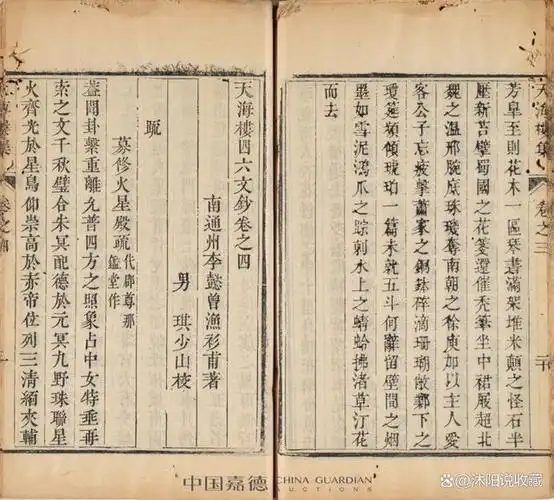 芳皐至則花木一區琴書滿架堆米顛之怪石半
壓新苔擘蜀國之花箋還催禿筆坐中裙屐超北
魏之溫邢腕底珠璣奪南朝之徐庾加以主人愛
客公子忘疲擊蕭家之銅鉢碎滴珊瑚敵鄴下之
瓊筵頻傾琥珀一篇未就五斗何辭留壁間之烟
墨如雪泥鴻爪之踪刺水上之蜻蛉拂渚草汀花
而去
卷之三
天海樓四六文鈔卷之四
南通州李懿曾漁衫甫著
男 琪少山校
疏
募修火星殿疏代鄺尊那鑑堂作
蓋聞卦繫重離允普四方之照象占中女特垂再
索之文千秋璧合朱冥配德於元冥九野珠聯星
火齊光於星鳥仰崇高於赤帝位列三清緬夾輔
卷之四
中国嘉德 CHINA GUARDIAN
AUCTIONS
@沐阳说收藏